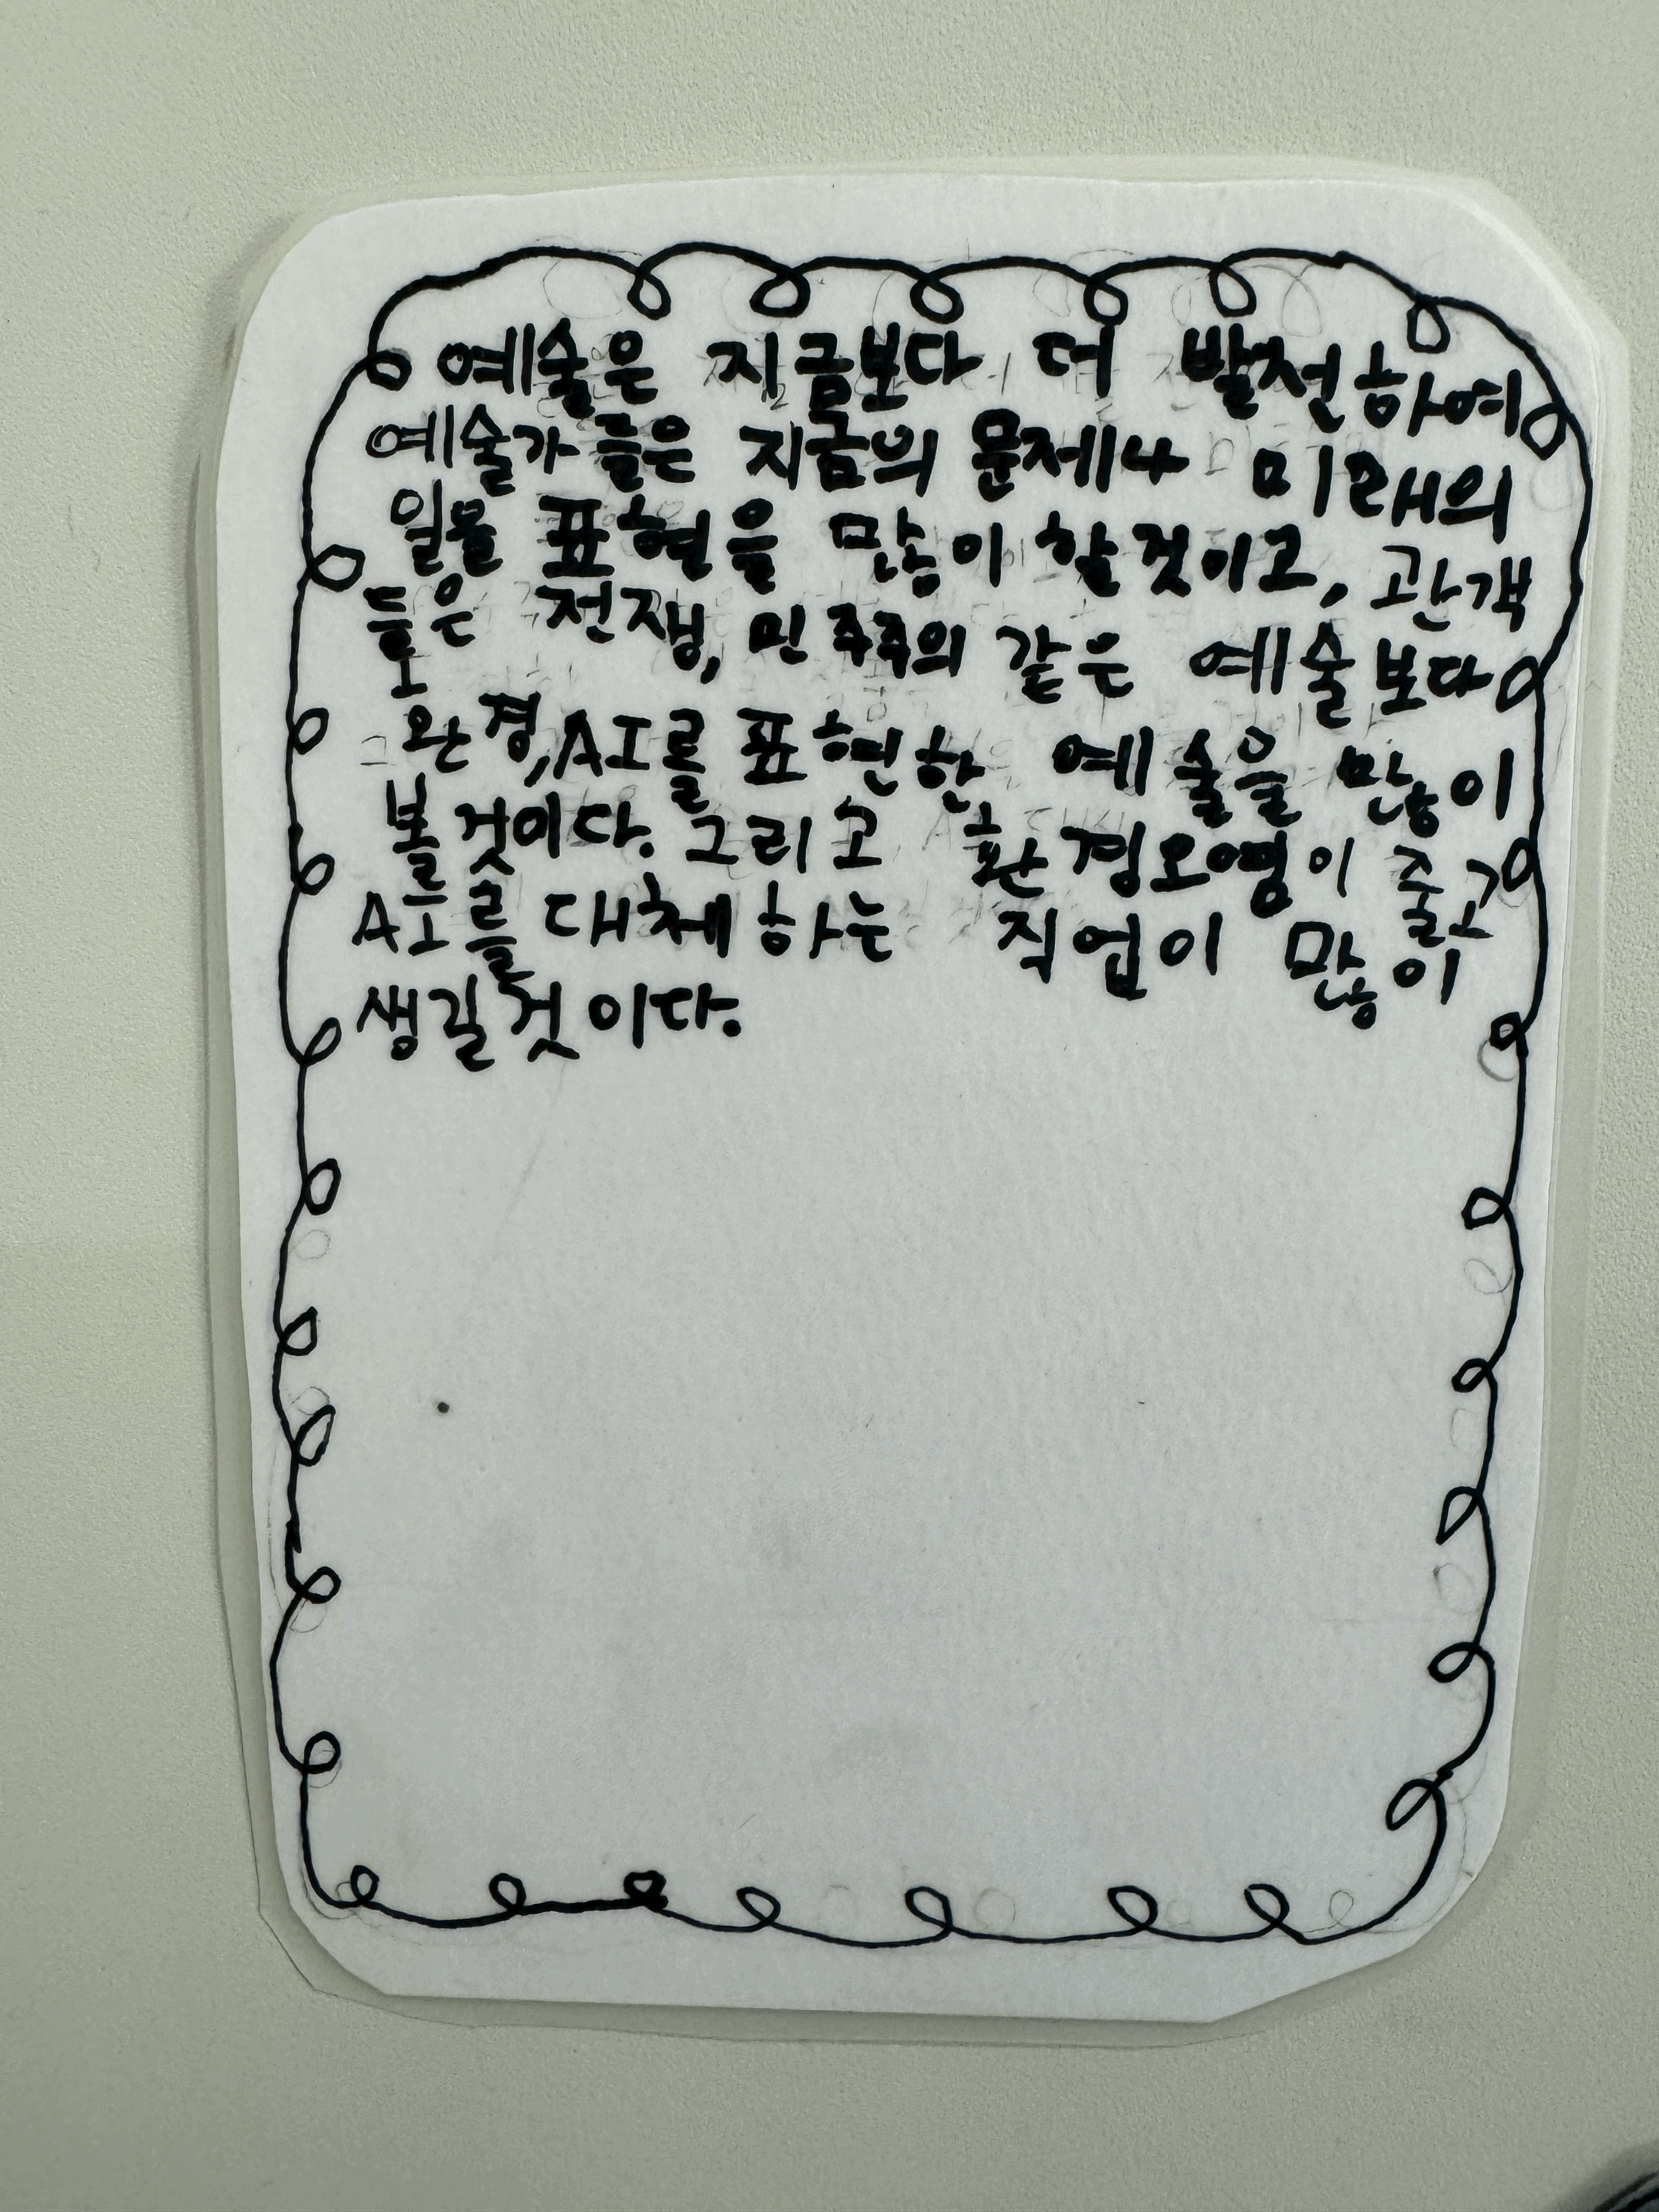 예술은 지금보다 더 발전하여
예술가들은 지금의 문제나 미래의
일을 표현을 많이 할것이고, 관객
들은 전쟁, 민주주의 같은 예술보다
환경, AI를 표현한 예술을 많이
볼것이다. 그리고 환경오염이 줄고
AI를 대체하는 직업이 많이
생길것이다.